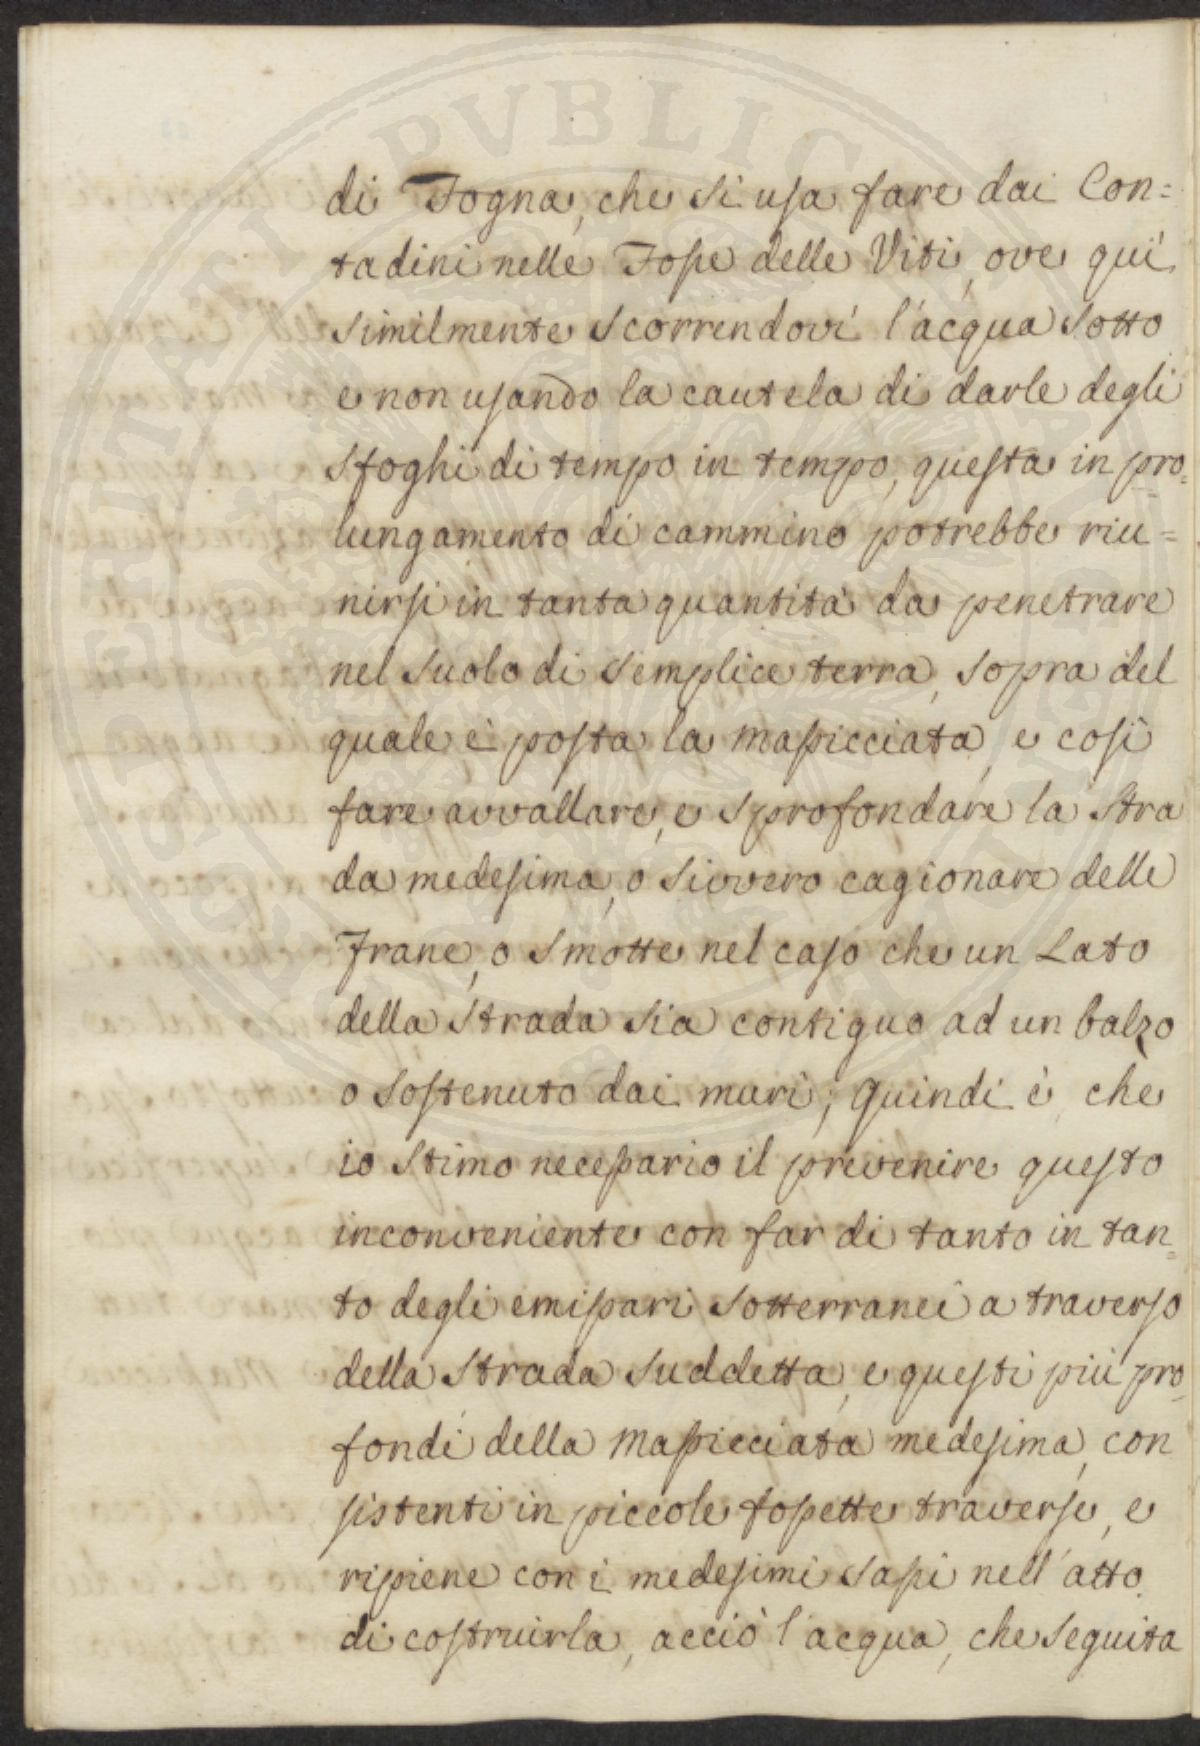 di Fogna, che si usa fare dai Con=
tadini nelle Fosse delle Viti, ove quì
similmente scorrendovi l'acqua sotto
e non usando la cautela di darle degli
sfoghi di tempo in tempo, questa in pro=
lungamento di cammino potrebbe riu=
nirsi in tanta quantità da penetrare
nel suolo di semplice terra, sopra del
quale è posta la massicciata, e così
fare avvallare, e sprofondare la Stra
da medesima, o sivvero cagionare delle
Frane, o Smotte nel caso che un Lato
della Strada sia contiguo ad un balzo
o sostenuto dai muri; Quindi è che
io stimo necessario il prevenire questo
inconveniente con far di tanto in tan=
to degli emissari sotterranei a traverso
della Strada suddetta, e questi più pro=
fondi della massicciata medesima, con
sistenti in piccole fossette traverse, e
ripiene con i medesimi sassi nell'atto
di costruirla, acciò l'acqua, che seguita